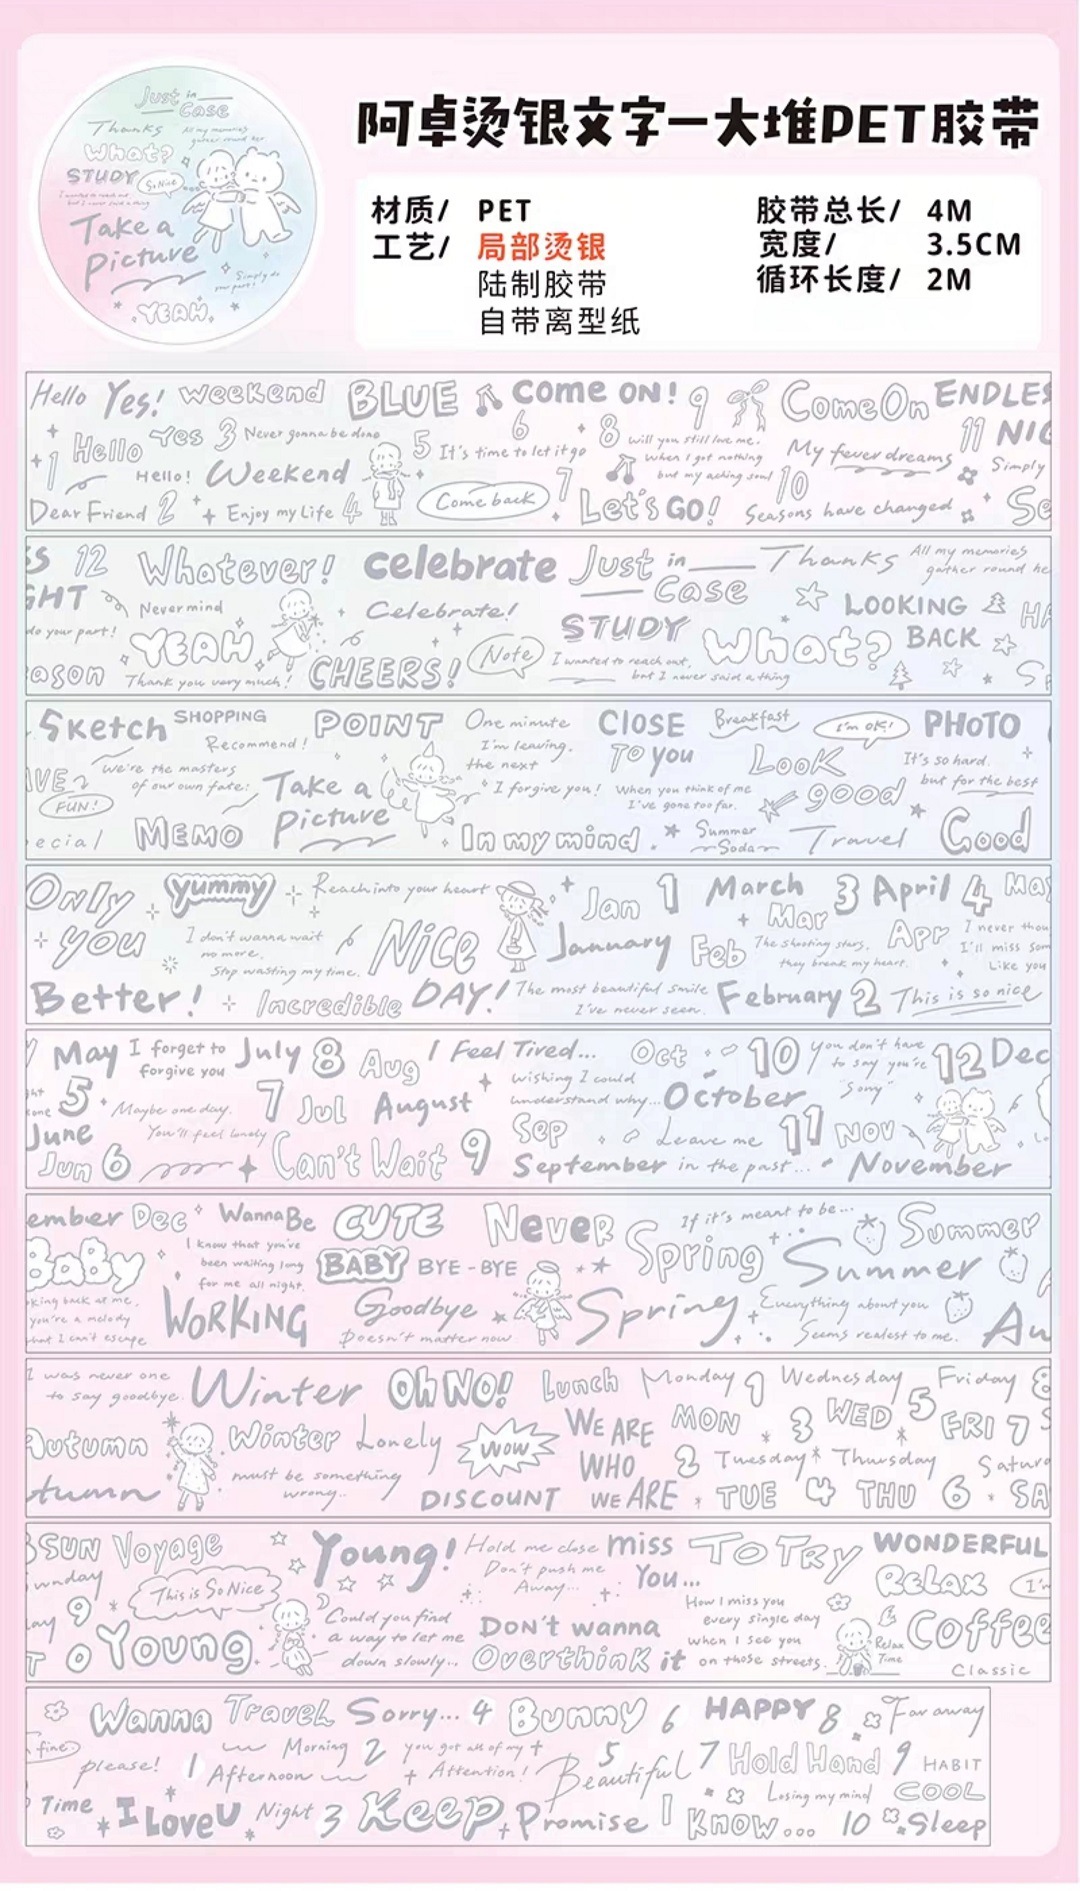 Just in
Case
Thanks
All my memories
gather round her
What?
STUDY
So Nice
I wanted to reach out,
but I never said a thing
Take a
Picture
Simply do
your part!
YEAH
阿卓烫银文字一大堆PET胶带
材质/ PET
工艺/ 局部烫银
陆制胶带
自带离型纸
胶带总长/ 4M
宽度/ 3.5CM
循环长度/ 2M
Hello Yes! weekend BLUE come ON! 9 ComeOn ENDLES
1 Hello Yes 3 Never gonna be done 5 6 It's time to let it go 8 will you still love me. when I got nothing but my aching soul My fever dreams 11 NIG
Hello! Weekend Come back 7 10 Simply
Dear Friend 2 Enjoy my Life 4 Let's GO! Seasons have changed Se
S 12 Whatever! celebrate Just in Case Thanks All my memories
gather round he
GHT Nevermind Celebrate! STUDY LOOKING BACK HA
do your part! YEAH Note What?
ason Thank you very much! CHEERS! I wanted to reach out,
but I never said a thing
Sketch SHOPPING POINT One minute CLOSE Breakfast I'm OK! PHOTO
Recommend! I'm leaving. TO you LOOK It's so hard.
AVE We're the masters the next but for the best
of our own fate: Take a I forgive you! When you think of me good
FUN! Picture I've gone too far.
ecial MEMO In my mind Summer Soda Travel Good
Only yummy Reach into your heart Jan 1 March 3 April 4 May
you I don't wanna wait Nice January Feb Mar Apr I never thou
no more. The shooting stars, I'll miss som
Stop wasting my time. they break my heart. Like you
Better! Incredible DAY! The most beautiful smile February 2 This is so nice
I've never seen.
May I forget to July 8 Aug I Feel Tired... Oct 10 you don't have 12 Dec
forgive you wishing I could to say you're
5 Maybe one day. 7 Jul August understand why... October "Sorry"
June You'll feel lonely Sep Leave me 11 Nov
Jun 6 Can't Wait 9 September in the past... November
ember Dec Wanna Be CUTE Never If it's meant to be... Summer
BaBy I know that you've BABY BYE-BYE Spring Summer
been waiting long
for me all night.
king back at me, WORKING Goodbye Spring Everything about you Au
you're a melody Doesn't matter now. Seems realest to me.
that I can't escape
I was never one Winter Oh NO! Lunch Monday 1 Wednesday Friday
to say goodbye. WE ARE MON 3 WED 5 FRI 7
Autumn Winter Lonely WOW WHO 2 Tuesday Thursday Satur
must be something
tumn wrong.. DISCOUNT WE ARE TUE 4 THU 6 SA
SUN Voyage Young! Hold me close miss TO TRY WONDERFUL
unday This is So Nice Don't push me You... RELAX I'm
Away...
9 Could you find DON'T wanna How I miss you Coffee
a way to let me every single day
T 0 Young down slowly... Overthink it when I see you Relax
on those streets. Time
Classic
Wanna Travel Sorry... 4 Bunny 6 HAPPY 8 Far away
fine please! 1 Morning 2 you got all of my 5 7 Hold Hand 9 HABIT
Afternoon Attention! Beautiful Losing my mind COOL
Time I Love U Night 3 Keep Promise I Know... 10 Sleep